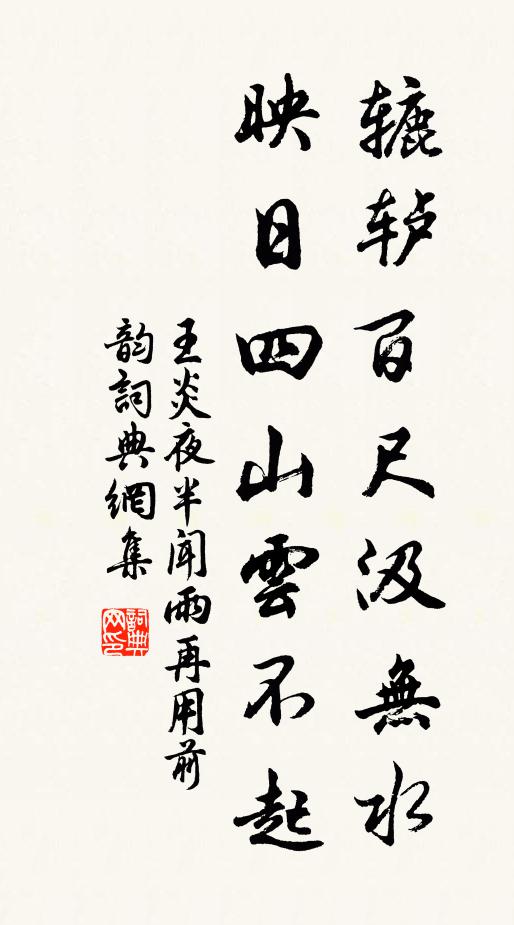 辘轳百尺汲無水
映日四山雲不起
王炎夜半闻雨再用前
韵詞典網集
詞典网印